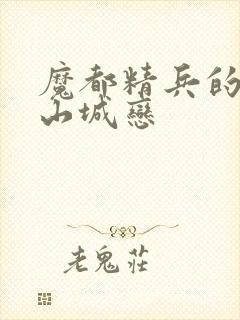 魔都精兵的
山城戀
老鬼莊